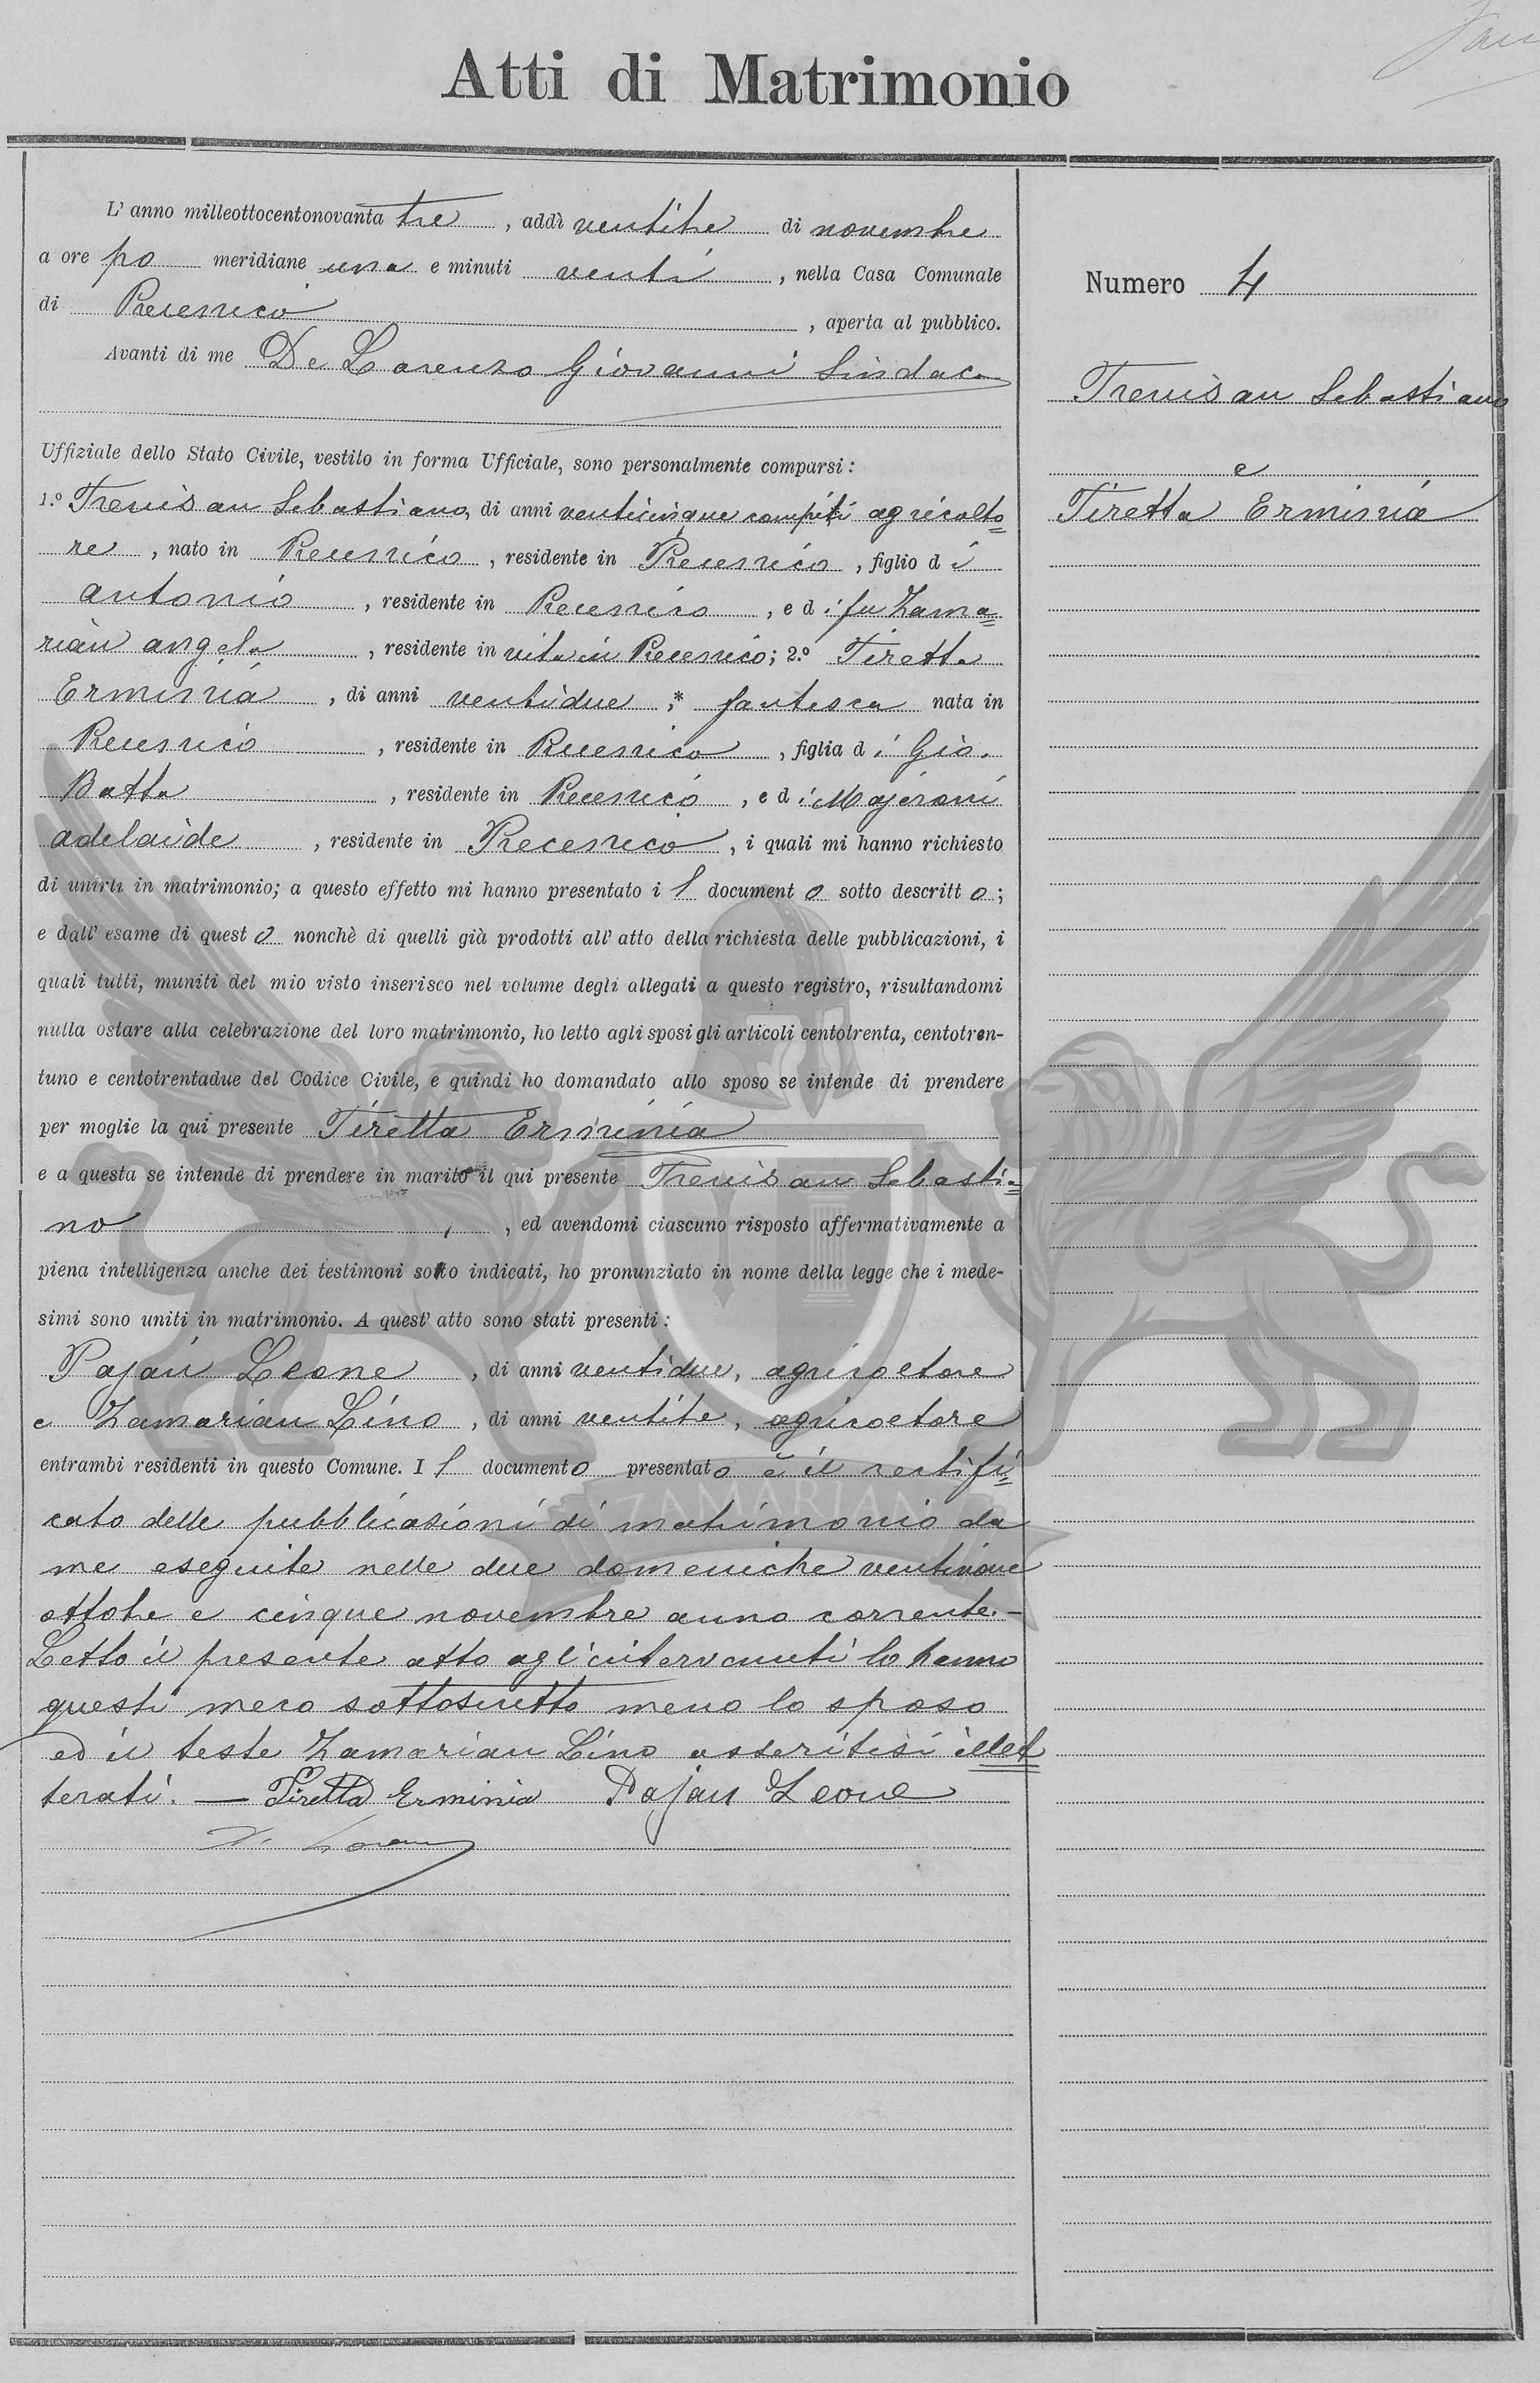 Atti di Matrimonio
L' anno milleottocentonovanta tre, addì ventitre di novembre
a ore po meridiane una e minuti venti, nella Casa Comunale
di Precenico, aperta al pubblico.
Avanti di me De Lorenzo Giovanni Sindaco
Uffiziale dello Stato Civile, vestito in forma Ufficiale, sono personalmente comparsi:
1.º Trevisan Sebastiano, di anni venticinque compiti agricolto=
re, nato in Precenico, residente in Precenico, figlio di
Antonio, residente in Precenico, e di fu Zama=
rian Angela, residente in vita in Precenico; 2.º Tiretta
Erminia, di anni ventidue,* fantesca nata in
Precenico, residente in Precenico, figlia di Gio.
Batta, residente in Precenico, e di Majeroni
Adelaide, residente in Precenico, i quali mi hanno richiesto
di unirli in matrimonio; a questo effetto mi hanno presentato il documento sotto descritto;
e dall' esame di questo nonchè di quelli già prodotti all' atto della richiesta delle pubblicazioni, i
quali tutti, muniti del mio visto inserisco nel volume degli allegati a questo registro, risultandomi
nulla ostare alla celebrazione del loro matrimonio, ho letto agli sposi gli articoli centotrenta, centotren-
tuno e centotrentadue del Codice Civile, e quindi ho domandato allo sposo se intende di prendere
per moglie la qui presente Tiretta Erminia
e a questa se intende di prendere in marito il qui presente Trevisan Sebastia=
no, ed avendomi ciascuno risposto affermativamente a
piena intelligenza anche dei testimoni sotto indicati, ho pronunziato in nome della legge che i mede-
simi sono uniti in matrimonio. A quest' atto sono stati presenti:
Pajan Leone, di anni ventidue, agricoltore
e Zamarian Lino, di anni ventitre, agricoltore
entrambi residenti in questo Comune. Il documento presentato è il certifi=
cato delle pubblicazioni di matrimonio da
me eseguite nelle due domeniche ventinove
ottobre e cinque novembre anno corrente.—
Letto il presente atto agl'intervenuti lo hanno
questi meco sottoscritto meno lo sposo
ed il teste Zamarian Lino asseritisi illet=
terati. — Tiretta Erminia Pajan Leone
Numero 4
Trevisan Sebastiano
e
Tiretta Erminia
ZAMARIAN